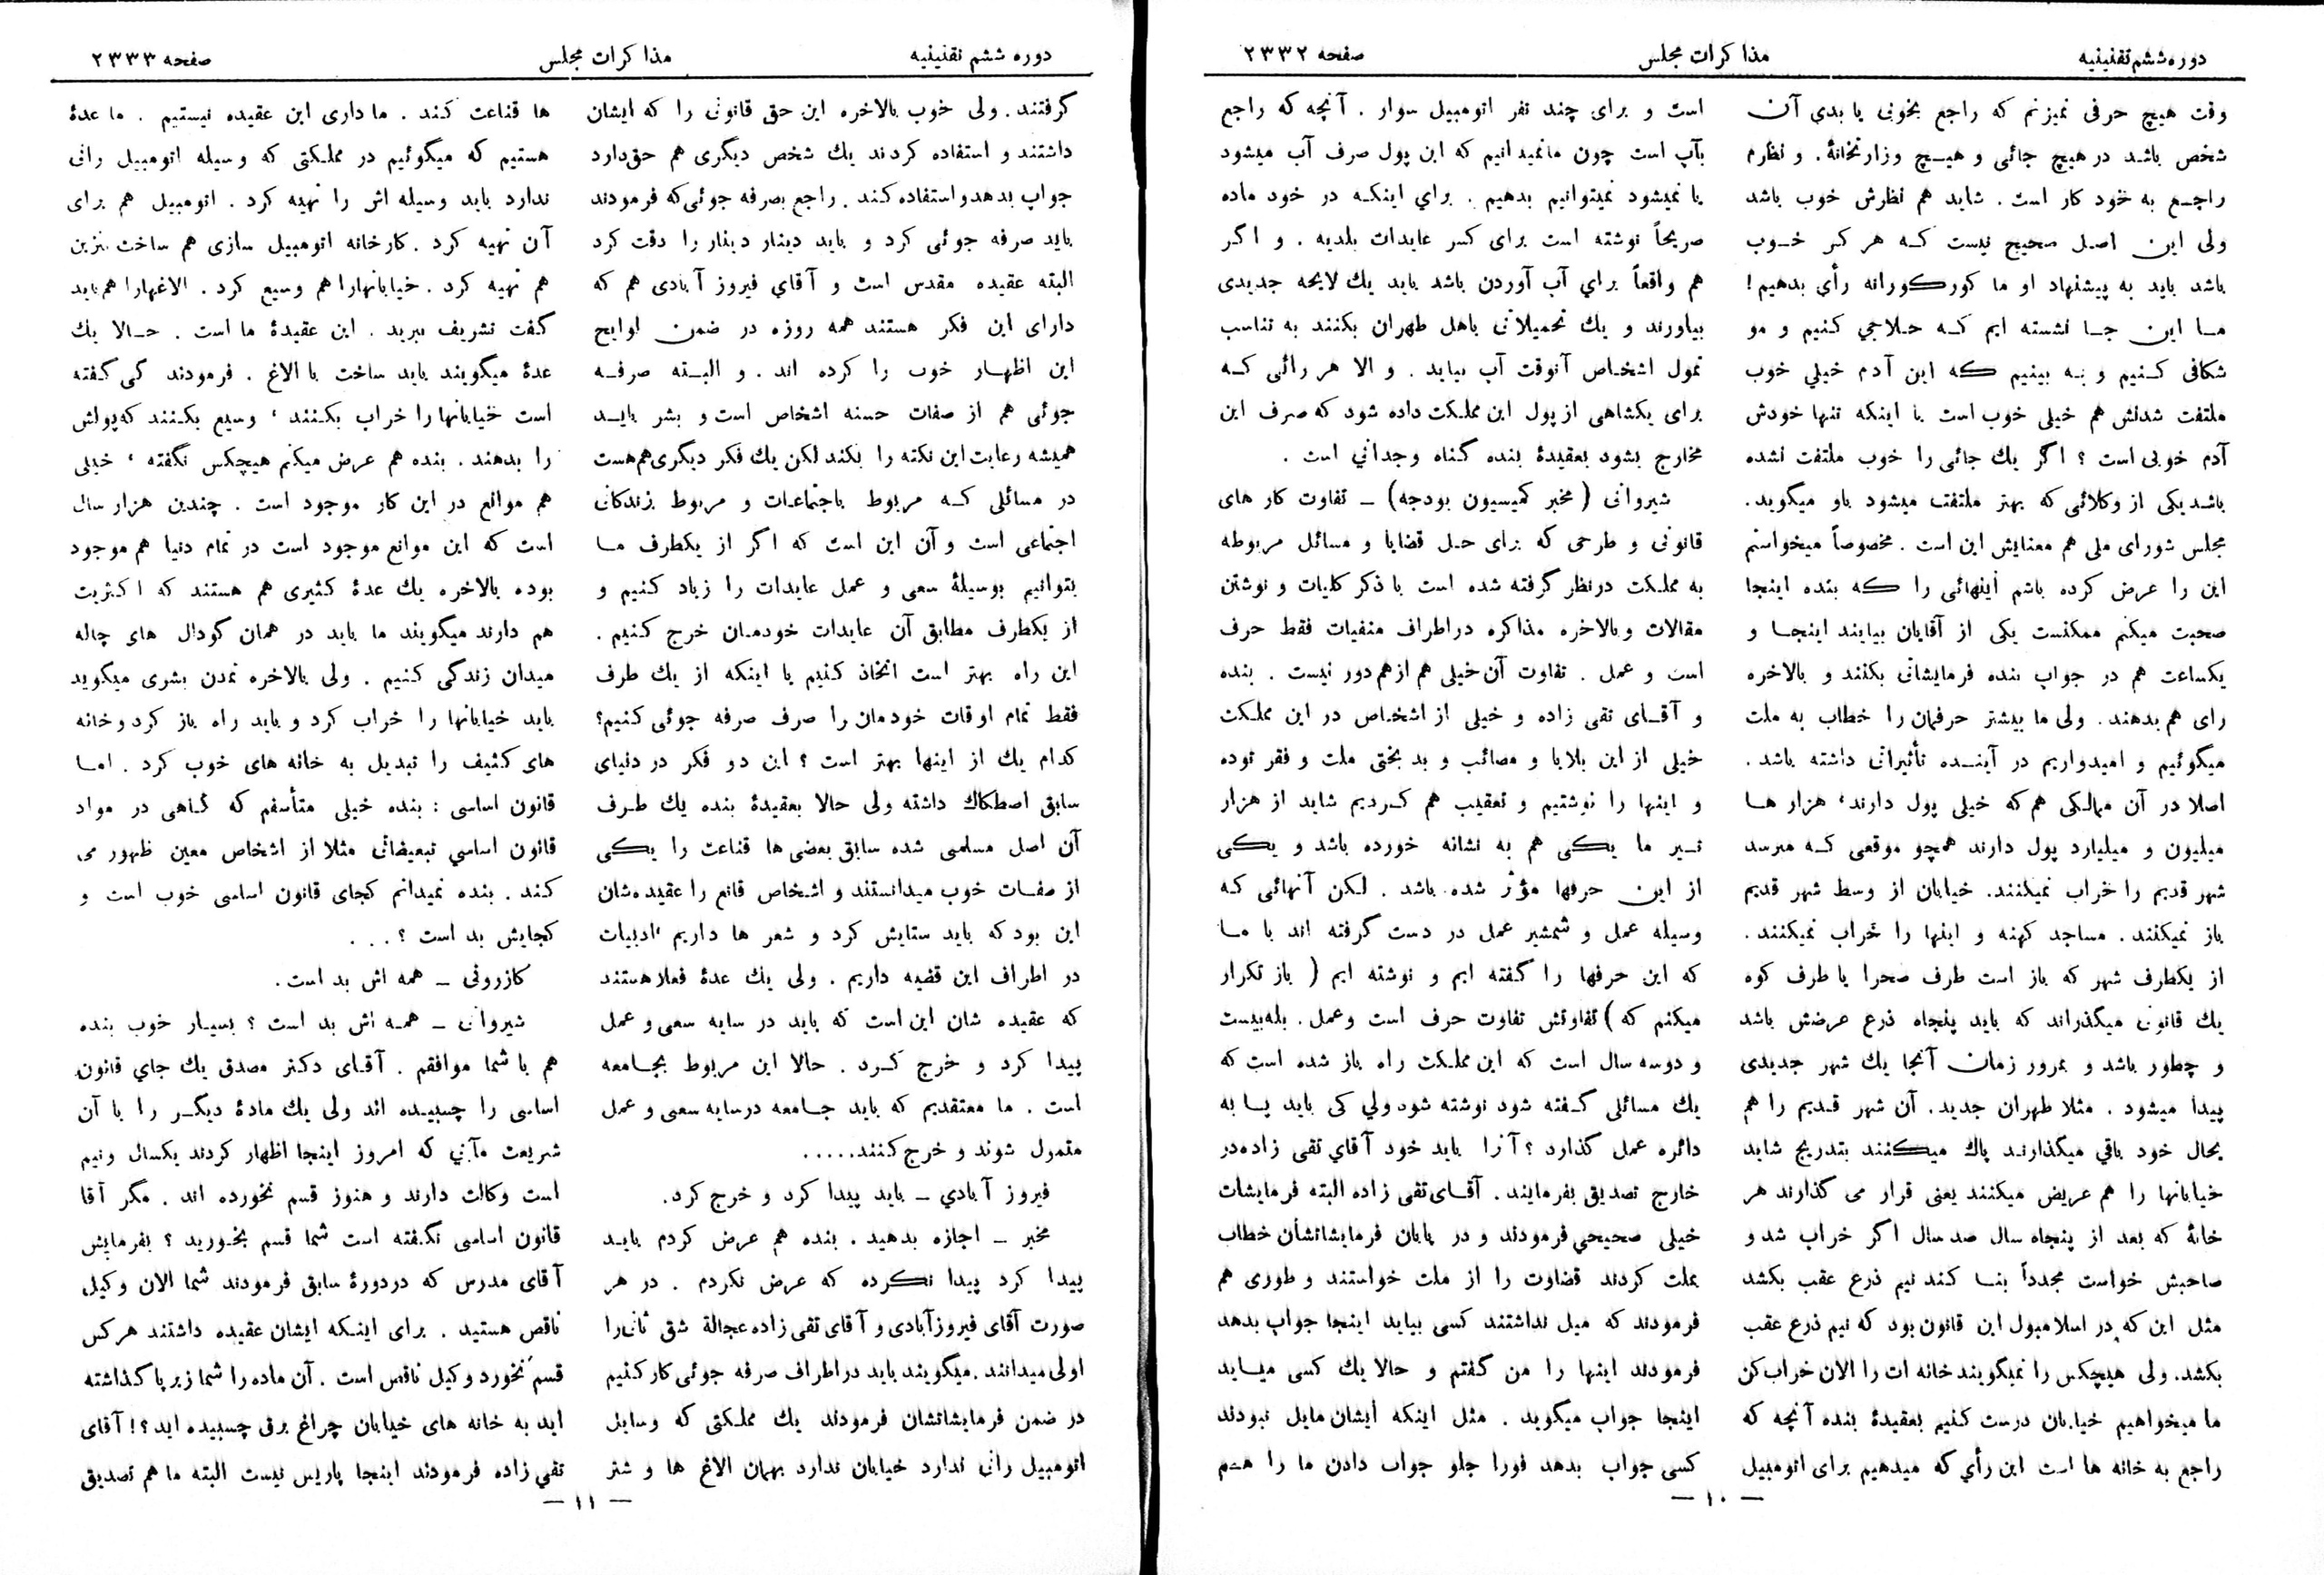 دوره ششم تقنینیه
مذاکرات مجلس
صفحه ۲۳۳۲
وقت هیچ حرفی نمیزنم که راجع بخوبی یا بدی آن
شخص باشد در هیچ جائی و هیـچ وزارتخانهٔ. و نظارم
راجـع به خود کار است. شاید هم نظرش خوب باشد
ولی این اصل صحیح نیست کـه هر کس خـوب
باشد باید به پیشنهاد او ما کورکورانه رأی بدهیم!
مـا این جـا نشسته ایم کـه حلاجی کنیم و مو
شکافی کـنیم و بـه بینیم که این آدم خیلی خوب
ملتفت شدنش هم خیلی خوب است یا اینکه تنها خودش
آدم خوبی است؟ اگر یك جائی را خوب ملتفت نشده
باشد یکی از وکلائی که بهتر ملتفت میشود باو میگوید.
مجلس شورای ملی هم معنایش این است. مخصوصاً میخواستم
این را عرض کرده باشم اینهائی را که بنده اینجا
صحبت میکنم ممکنست یکی از آقایان بیایند اینجـا و
یکساعت هم در جواب بنده فرمایشاتی بکنند و بالاخره
رای هم بدهند. ولی ما بیشتر حرفمان را خطاب به ملت
میگوئیم و امیدواریم در آینـده تأثیراتی داشته باشد.
اصلا در آن ممالکی هم که خیلی پول دارند، هزار هـا
میلیون و میلیارد پول دارند همچو موقعی کـه میرسد
شهر قدیم را خراب نمیکنند. خیابان از وسط شهر قدیم
باز نمیکنند. مساجد کهنه و ابنها را خراب نمیکنند.
از یکطرف شهر که باز است طرف صحرا یا طرف کوه
یك قانونی میگذراند که باید پنجاه ذرع عرضش باشد
و چطور باشد و بمرور زمان آنجا یك شهر جدیدی
پیدا میشود. مثلا طهران جدید. آن شهر قـدیم را هم
بحال خود باقی میگذارنـد پاك میکـنند بتدریج شاید
خیابانها را هم عریض میکنند یعنی قرار می گذارند هر
خانهٔ که بعد از پنجاه سال صد سال اگر خراب شد و
صاحبش خواست مجدداً بنـا کند نیم ذرع عقب بکشد
مثل این که در اسلامبول این قانون بود که نیم ذرع عقب
بکشد. ولی هیچکس را نمیگویند خانه ات را الان خراب کن
ما میخواهیم خیابان درست کنیم بعقیدهٔ بنده آنچه که
راجع به خانه ها است این رأی که میدهیم برای اتومبیل
است و برای چند نفر اتومبیل سوار. آنچه که راجع
بآب است چون ما نمیدانیم که این پول صرف آب میشود
یا نمیشود نمیتوانیم بدهیم. برای اینکـه در خود ماده
صریحاً نوشته است برای کسر عایدات بلدیه. و اگر
هم واقعاً برای آب آوردن باشد باید یك لایحه جدیدی
بیاورند و یك تحمیلاتی باهل طهران بکنند به تناسب
تمول اشخـاص آنوقت آب بیاید. و الا هر رائی کـه
برای یکشاهی از پول این مملکت داده شود که صرف این
مخارج بشود بعقیدهٔ بنده گناه وجدانی است.
شیروانی (مخبر کمیسیون بودجه) ـ تفاوت کار های
قانونی و طرحی که برای حل قضایا و مسائل مربوطه
به مملکت در نظر گرفته شده است با ذکر کلیات و نوشتن
مقالات و بالاخره مذاکره در اطراف منفیات فقط حرف
است و عمل. تفاوت آن خیلی هم از هم دور نیست. بنده
و آقـای تقی زاده و خیلی از اشخـاص در این مملکت
خیلی از این بلایا و مصائب و بد بختی ملت و فقر توده
و اینها را نوشتیم و تعقیب هم کـردیم شاید از هزار
تـیر ما یـکی هم به نشانه خورده باشد و یکی
از این حرفها مؤثر شده باشد. لکن آنهائی کـه
وسیله عمل و شمشیر عمل در دست گرفته اند با مـا
که این حرفها را گفته ایم و نوشته ایم (باز تکرار
میکنم که) تفاوتش تفاوت حرف است و عمل. بله بیست
و دو سه سال است که این مملکت راه باز شده است که
یك مسائلی گـفته شود نوشته شود ولی کی باید پـا به
دائره عمل گذارد؟ آنرا باید خود آقای تقی زاده در
خارج تصدیق بفرمایند. آقـای تقی زاده البته فرمایشات
خیلی صحیحی فرمودند و در پایان فرمایشاتشان خطاب
بملت کردند قضاوت را از ملت خواستند و طوری هم
فرمودند که میل نداشتند کسی بیاید اینجا جواب بدهد
فرمودند اینها را من گفتم و حالا یك کسی میـاید
اینجا جواب میگوید. مثل اینکه ایشان مایل نبودند
کسی جواب بدهد فورا جلو جواب دادن ما را هم
— ۱۰ —
دوره ششم تقنینیه
مذاکرات مجلس
صفحه ۲۳۳۳
گرفتند. ولی خوب بالاخره این حق قانونی را که ایشان
داشتند و استفاده کردند یك شخص دیگری هم حق دارد
جواب بدهد و استفاده کـند. راجع بصرفه جوئی که فرمودند
باید صرفه جوئی کرد و باید دینار دینار را دقت کرد
البته عقیده مقدس است و آقای فیروز آبادی هم که
دارای این فکر هستند همه روزه در ضمن لوایح
این اظهـار خوب را کرده اند. و البـته صرفـه
جوئی هم از صفات حسنه اشخاص است و بشر بایـد
همیشه رعایت این نکته را بکند لکن یك فکر دیگری هم هست
در مسائلی کـه مربوط باجتماعیات و مربوط بزندگانی
اجتماعی است و آن این است که اگر از یکطرف مـا
بتوانیم بوسیلهٔ سعی و عمل عایدات را زیاد کنیم و
از یکطرف مطابق آن عایدات خودمان خرج کـنیم.
این راه بهتر است اتخاذ کنیم یا اینکه از یك طرف
فقط تمام اوقات خودمان را صرف صرفه جوئی کنیم؟
کدام یك از اینها بهتر است؟ این دو فکر در دنیای
سابق اصطکاك داشته ولی حالا بعقیدهٔ بنده یك طـرف
آن اصل مسلمی شده سابق بعضی ها قناعت را یکی
از صفـات خوب میدانستند و اشخاص قانع را عقیده شان
این بود که باید ستایش کرد و شعر ها داریم، ادبیات
در اطراف این قضیه داریم. ولی یك عدهٔ فعلا هستند
که عقیده شان این است که باید در سایه سعی و عمل
پیدا کرد و خرج کـرد. حالا این مربوط بجـامعه
است. ما معتقدیم که باید جـامعه در سایه سعی و عمل
متمول شوند و خرج کـنند.....
فیروز آبادی ـ باید پیدا کرد و خرج کرد.
مخبر ـ اجازه بدهید. بنده هم عرض کردم بایـد
پیدا کرد پیدا نکرده که عرض نکردم. در هر
صورت آقای فیروزآبادی و آقای تقی زاده عجالة شق ثانی را
اولی میدانند. میگویند باید در اطراف صرفه جوئی کار کـنیم
در ضمن فرمایشاتشان فرمودند یك مملکتی که وسایل
اتومبیل رانی ندارد خیابان ندارد بهمان الاغ ها و شتر
ها قناعت کـند. ما داری این عقیده نیستیم. ما عدهٔ
هستیم که میگوئیم در مملکتی که وسیله اتومبیل رانی
ندارد باید وسیله اش را تهیه کرد. اتومبیل هم برای
آن تهیه کرد. کارخانه اتومبیل سازی هم ساخت بنزین
هم تهیه کرد. خیابانهارا هم وسیع کرد. الاغهارا هم باید
گفت تشریف ببرید. این عقیدهٔ ما است. حـالا یك
عدهٔ میگویند باید ساخت با الاغ. فرمودند کی گـفته
است خیابانها را خراب بکـنند، وسیع بکـنند که پولش
را بدهند. بنده هم عرض میکنم هیچکس نگفته، خیلی
هم موانع در این کار موجود است. چندین هزار سال
است که این موانع موجود است در تمام دنیا هم موجود
بوده بالاخره یك عدهٔ کثیری هم هستند که اکثریت
هم دارند میگویند ما باید در همان گودال های چاله
میدان زندگی کـنیم. ولی بالاخره تمدن بشری میگوید
باید خیابانها را خراب کرد و باید راه باز کرد و خانه
های کثیف را تبدیل به خانه های خوب کرد. امـا
قانون اساسی: بنده خیلی متأسفم که گـاهی در مواد
قانون اساسی تبعیضاتی مثلا از اشخاص معین ظهور می
کـند. بنده نمیدانم کجای قانون اساسی خوب است و
کجایش بد است؟...
کازرونی ـ همه اش بد است.
شیروانی ـ همـه اش بد است؟ بسیـار خوب بنده
هم با شما موافقم. آقـای دکتر مصدق یك جای قانون
اساسی را چسبیـده اند ولی یك مادهٔ دیگـر را با آن
شریعت مآبی که امروز اینجا اظهار کردند یکسال و نیم
است وکالت دارند و هنوز قسم نخورده اند. مگر آقا
قانون اساسی نگـفته است شما قسم بخورید؟ بفرمایش
آقای مدرس که در دورهٔ سابق فرمودند شما الان وکیل
ناقص هستید. برای اینکه ایشان عقیده داشتند هر کس
قسم نخورد وکیل ناقص است. آن ماده را شما زیر پا گذاشته
اید به خانه های خیابان چراغ برقی چسبیده اید؟! آقای
تقی زاده فرمودند اینجا پاریس نیست البته ما هم تصدیق
— ۱۱ —